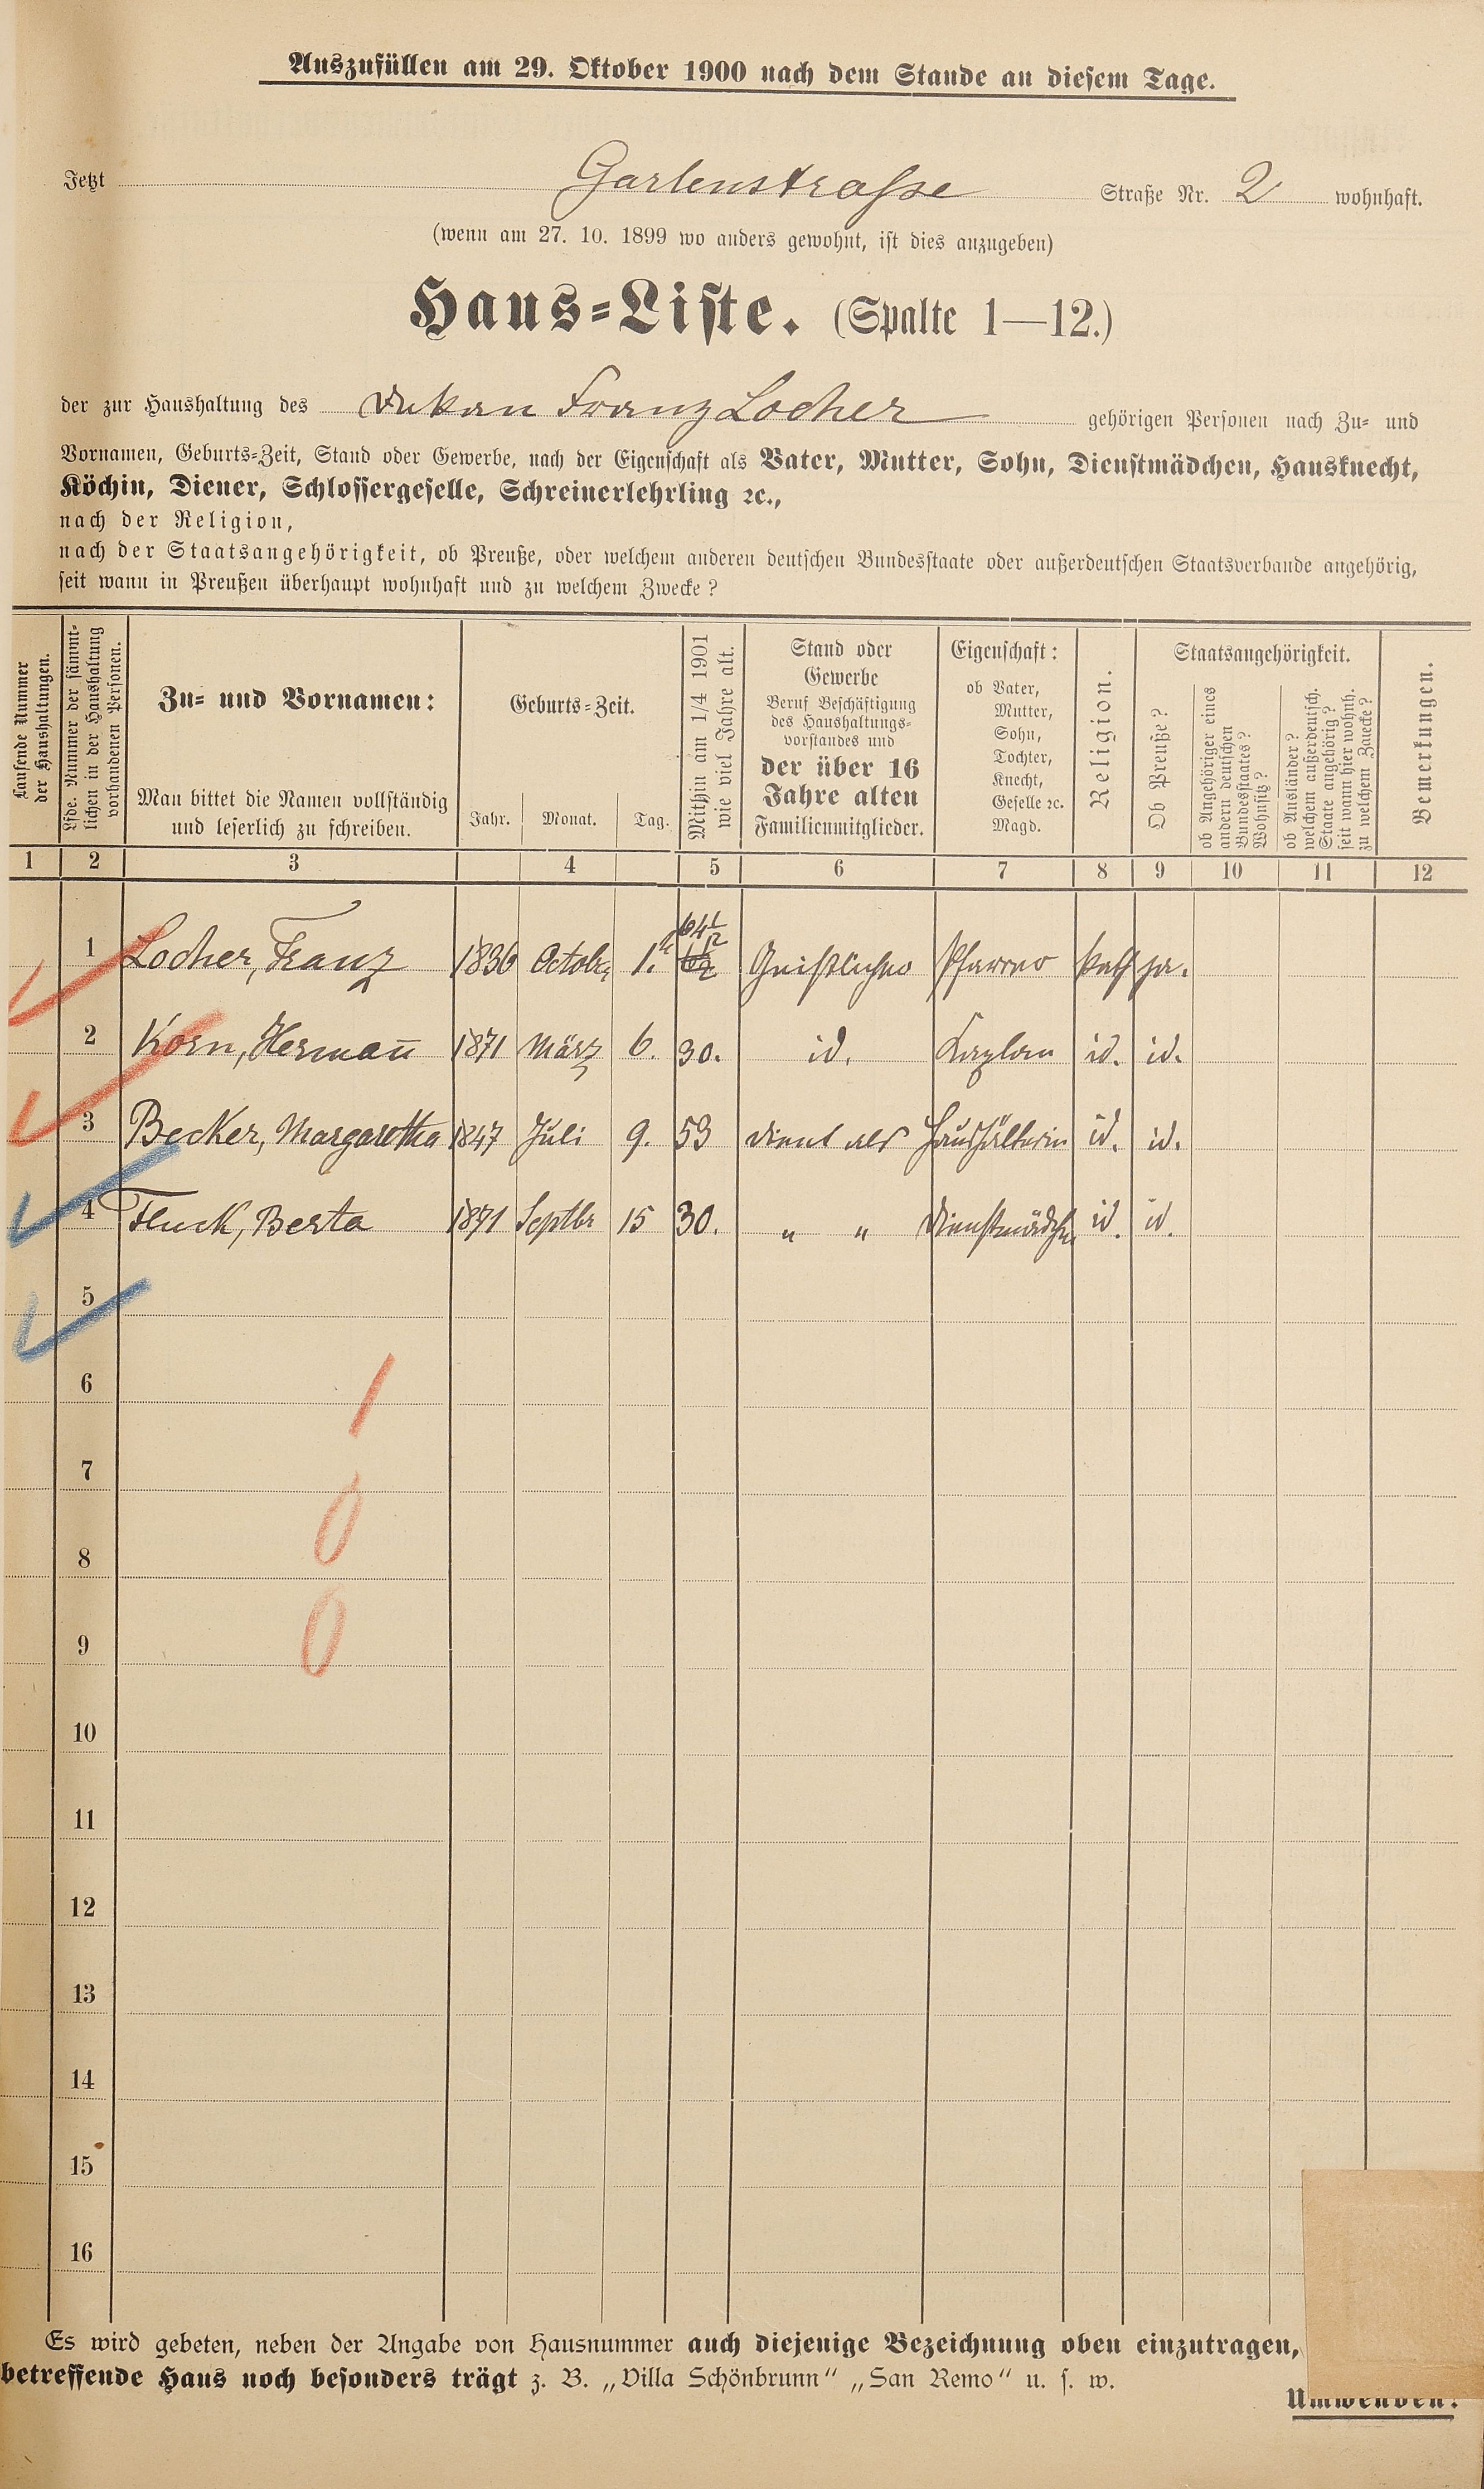 Auszufüllen am 29. Oktober 1900 nach dem Stande an diesem Tage.
Jetzt Gartenstraße Straße Nr. 2 wohnhaft.
(wenn am 27. 10. 1899 wo anders gewohnt, ist dies anzugeben)
Haus-Liste. (Spalte 1—12.)
der zur Haushaltung des Dekan Franz Locher gehörigen Personen nach Zu- und
Vornamen, Geburts-Zeit, Stand oder Gewerbe, nach der Eigenschaft als Vater, Mutter, Sohn, Dienstmädchen, Hausknecht,
Köchin, Diener, Schlossergeselle, Schreinerlehrling ꝛc.,
nach der Religion,
nach der Staatsangehörigkeit, ob Preuße, oder welchem anderen deutschen Bundesstaate oder außerdeutschen Staatsverbande angehörig,
seit wann in Preußen überhaupt wohnhaft und zu welchem Zwecke?
Laufende Nummer
der Haushaltungen.
Lfde. Nummer der sämmt-
lichen in der Haushaltung
vorhandenen Personen.
Zu- und Vornamen:
Man bittet die Namen vollständig
und leserlich zu schreiben.
Geburts-Zeit.
Jahr. Monat. Tag.
Mithin am 1/4 1901
wie viel Jahre alt.
Stand oder
Gewerbe
Beruf Beschäftigung
des Haushaltungs-
vorstandes und
der über 16
Jahre alten
Familienmitglieder.
Eigenschaft:
ob Vater,
Mutter,
Sohn,
Tochter,
Knecht,
Geselle ꝛc.
Magd.
Religion.
Staatsangehörigkeit.
Ob Preuße?
ob Angehöriger eines
andern deutschen
Bundesstaates?
Wohnsitz?
ob Ausländer?
welchem außerdeutsch.
Staate angehörig?
seit wann hier wohnh.
zu welchem Zwecke?
Bemerkungen.
1 2 3 4 5 6 7 8 9 10 11 12
1 Locher, Franz 1836 Octobr. 1. 64½ Geistlicher Pfarrer kath ja.
2 Korn, Hermañ 1871 März 6. 30. id. Kaplan id. id.
3 Becker, Margaretha 1847 Juli 9. 53 dient als Haushälterin id. id.
4 Fluck, Berta 1871 Septbr 15 30. " " Dienstmädchen id. id.
5
6 1
7
8 0
9 0
10
11
12
13
14
15
16
Es wird gebeten, neben der Angabe von Hausnummer auch diejenige Bezeichnung oben einzutragen,
betreffende Haus noch besonders trägt z. B. „Villa Schönbrunn“ „San Remo“ u. s. w.
Umwenden!